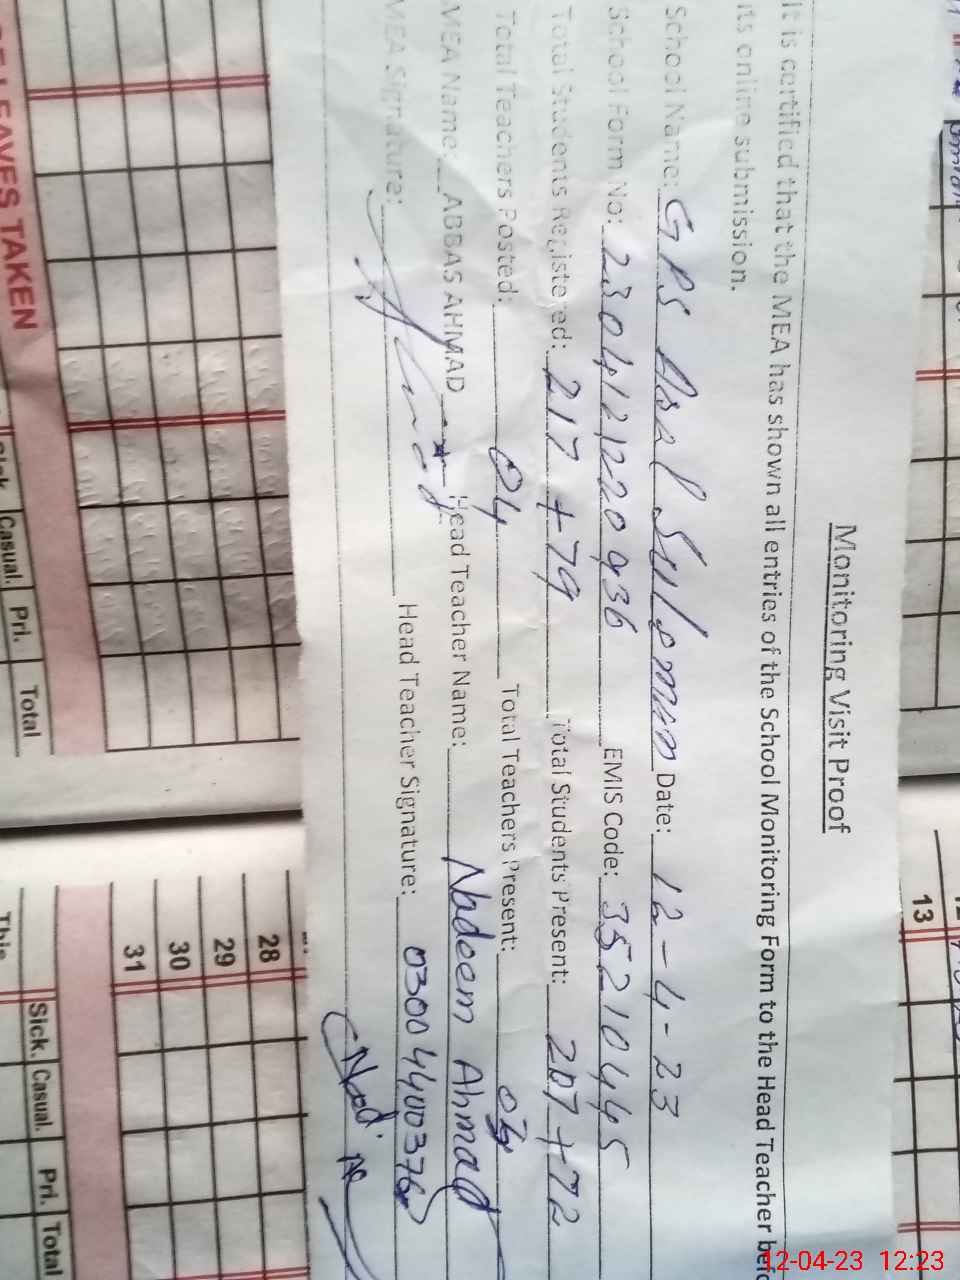 Monitoring Visit Proof
It is certified that the MEA has shown all entries of the School Monitoring Form to the Head Teacher before
its online submission.
School Name: GPS Asal Suleman Date: 12-4-23
School Form No: 2304121220936 EMIS Code: 35210445
Total Students Registered: 217 + 79 Total Students Present: 207 + 72
Total Teachers Posted: 04 Total Teachers Present: 04
MEA Name: ABBAS AHMAD Head Teacher Name: Nadeem Ahmad
MEA Signature: Head Teacher Signature: 03004400376
LEAVES TAKEN
Sick. Casual. Pri. Total
28
29
30
31
Sick. Casual. Pri. Total
This
13
12-04-23 12:23